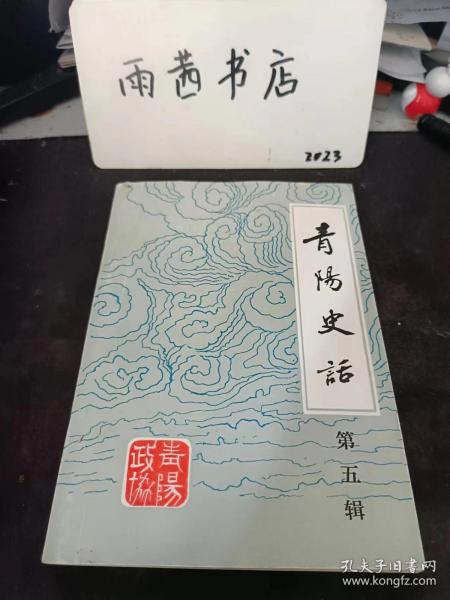 雨茜书店
2023
青陽史話
第五辑
青陽
政協
孔夫子旧书网
www.kongfz.com